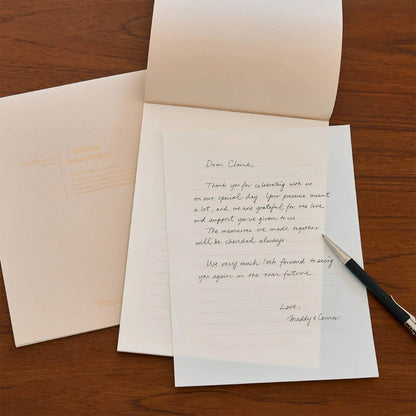 Dear Claire,
Thank you for celebrating with us
on our special day. Your presence meant
a lot, and we are grateful for the love
and support you've given to us.
The memories we made together
will be cherished always.
We very much look forward to seeing
you again in the near future.
Love,
Maddy & Connor